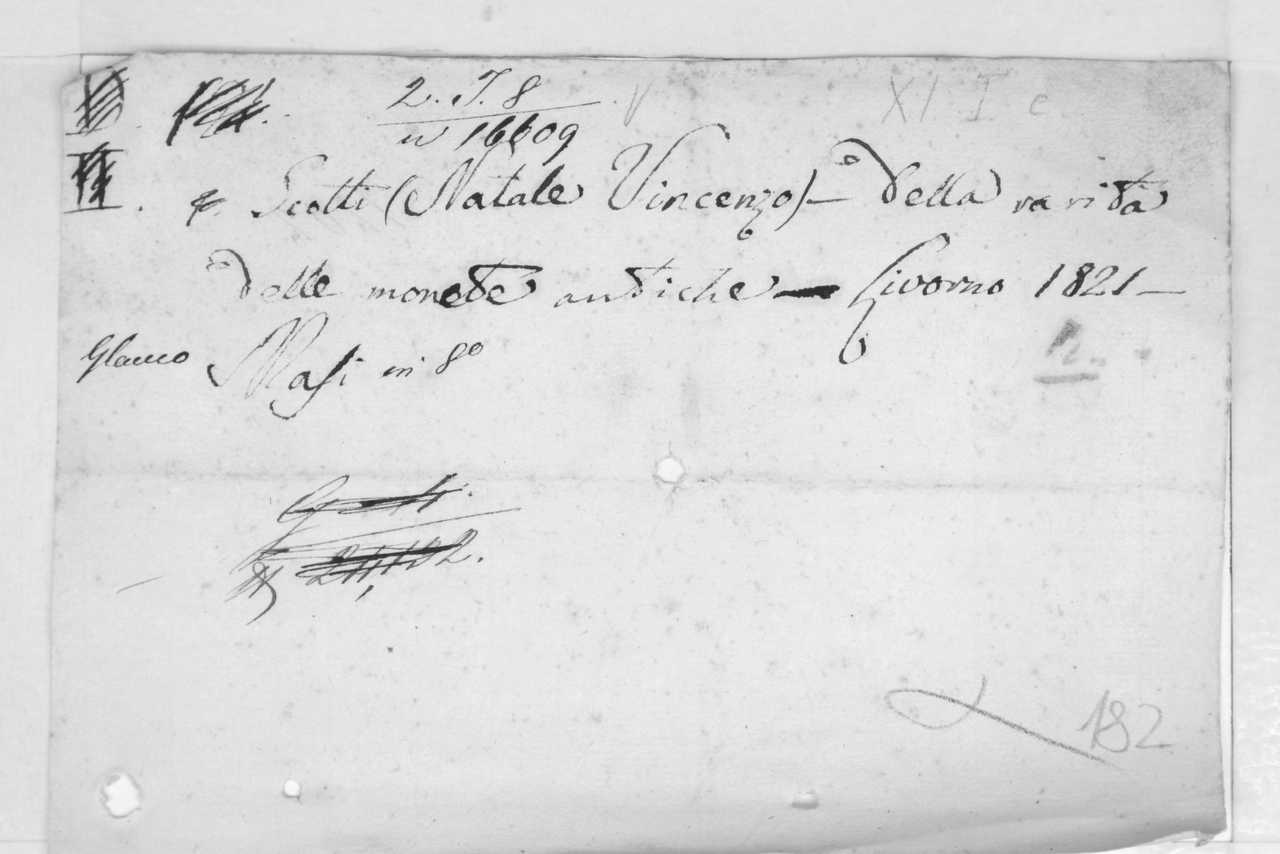 2. J. 8 XI I c
n 16609
Scotti (Natale Vincenzo) — della rarità
delle monete antiche — Livorno 1821 —
Glauco Masi in 8º
182